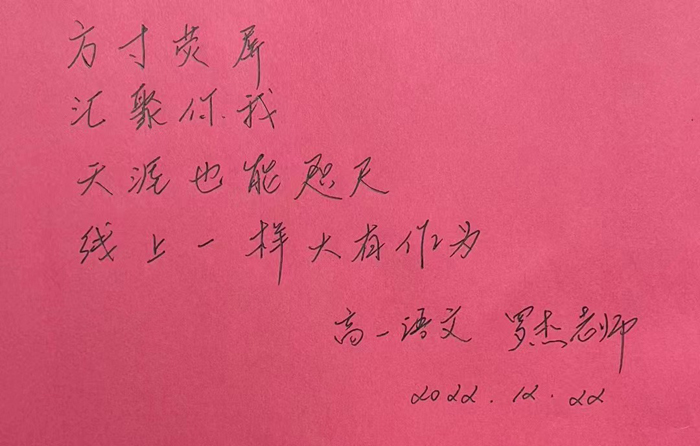 方寸荧屏
汇聚你我
天涯也能咫尺
线上一样大有作为
高一语文 罗杰老师
2022.12.22